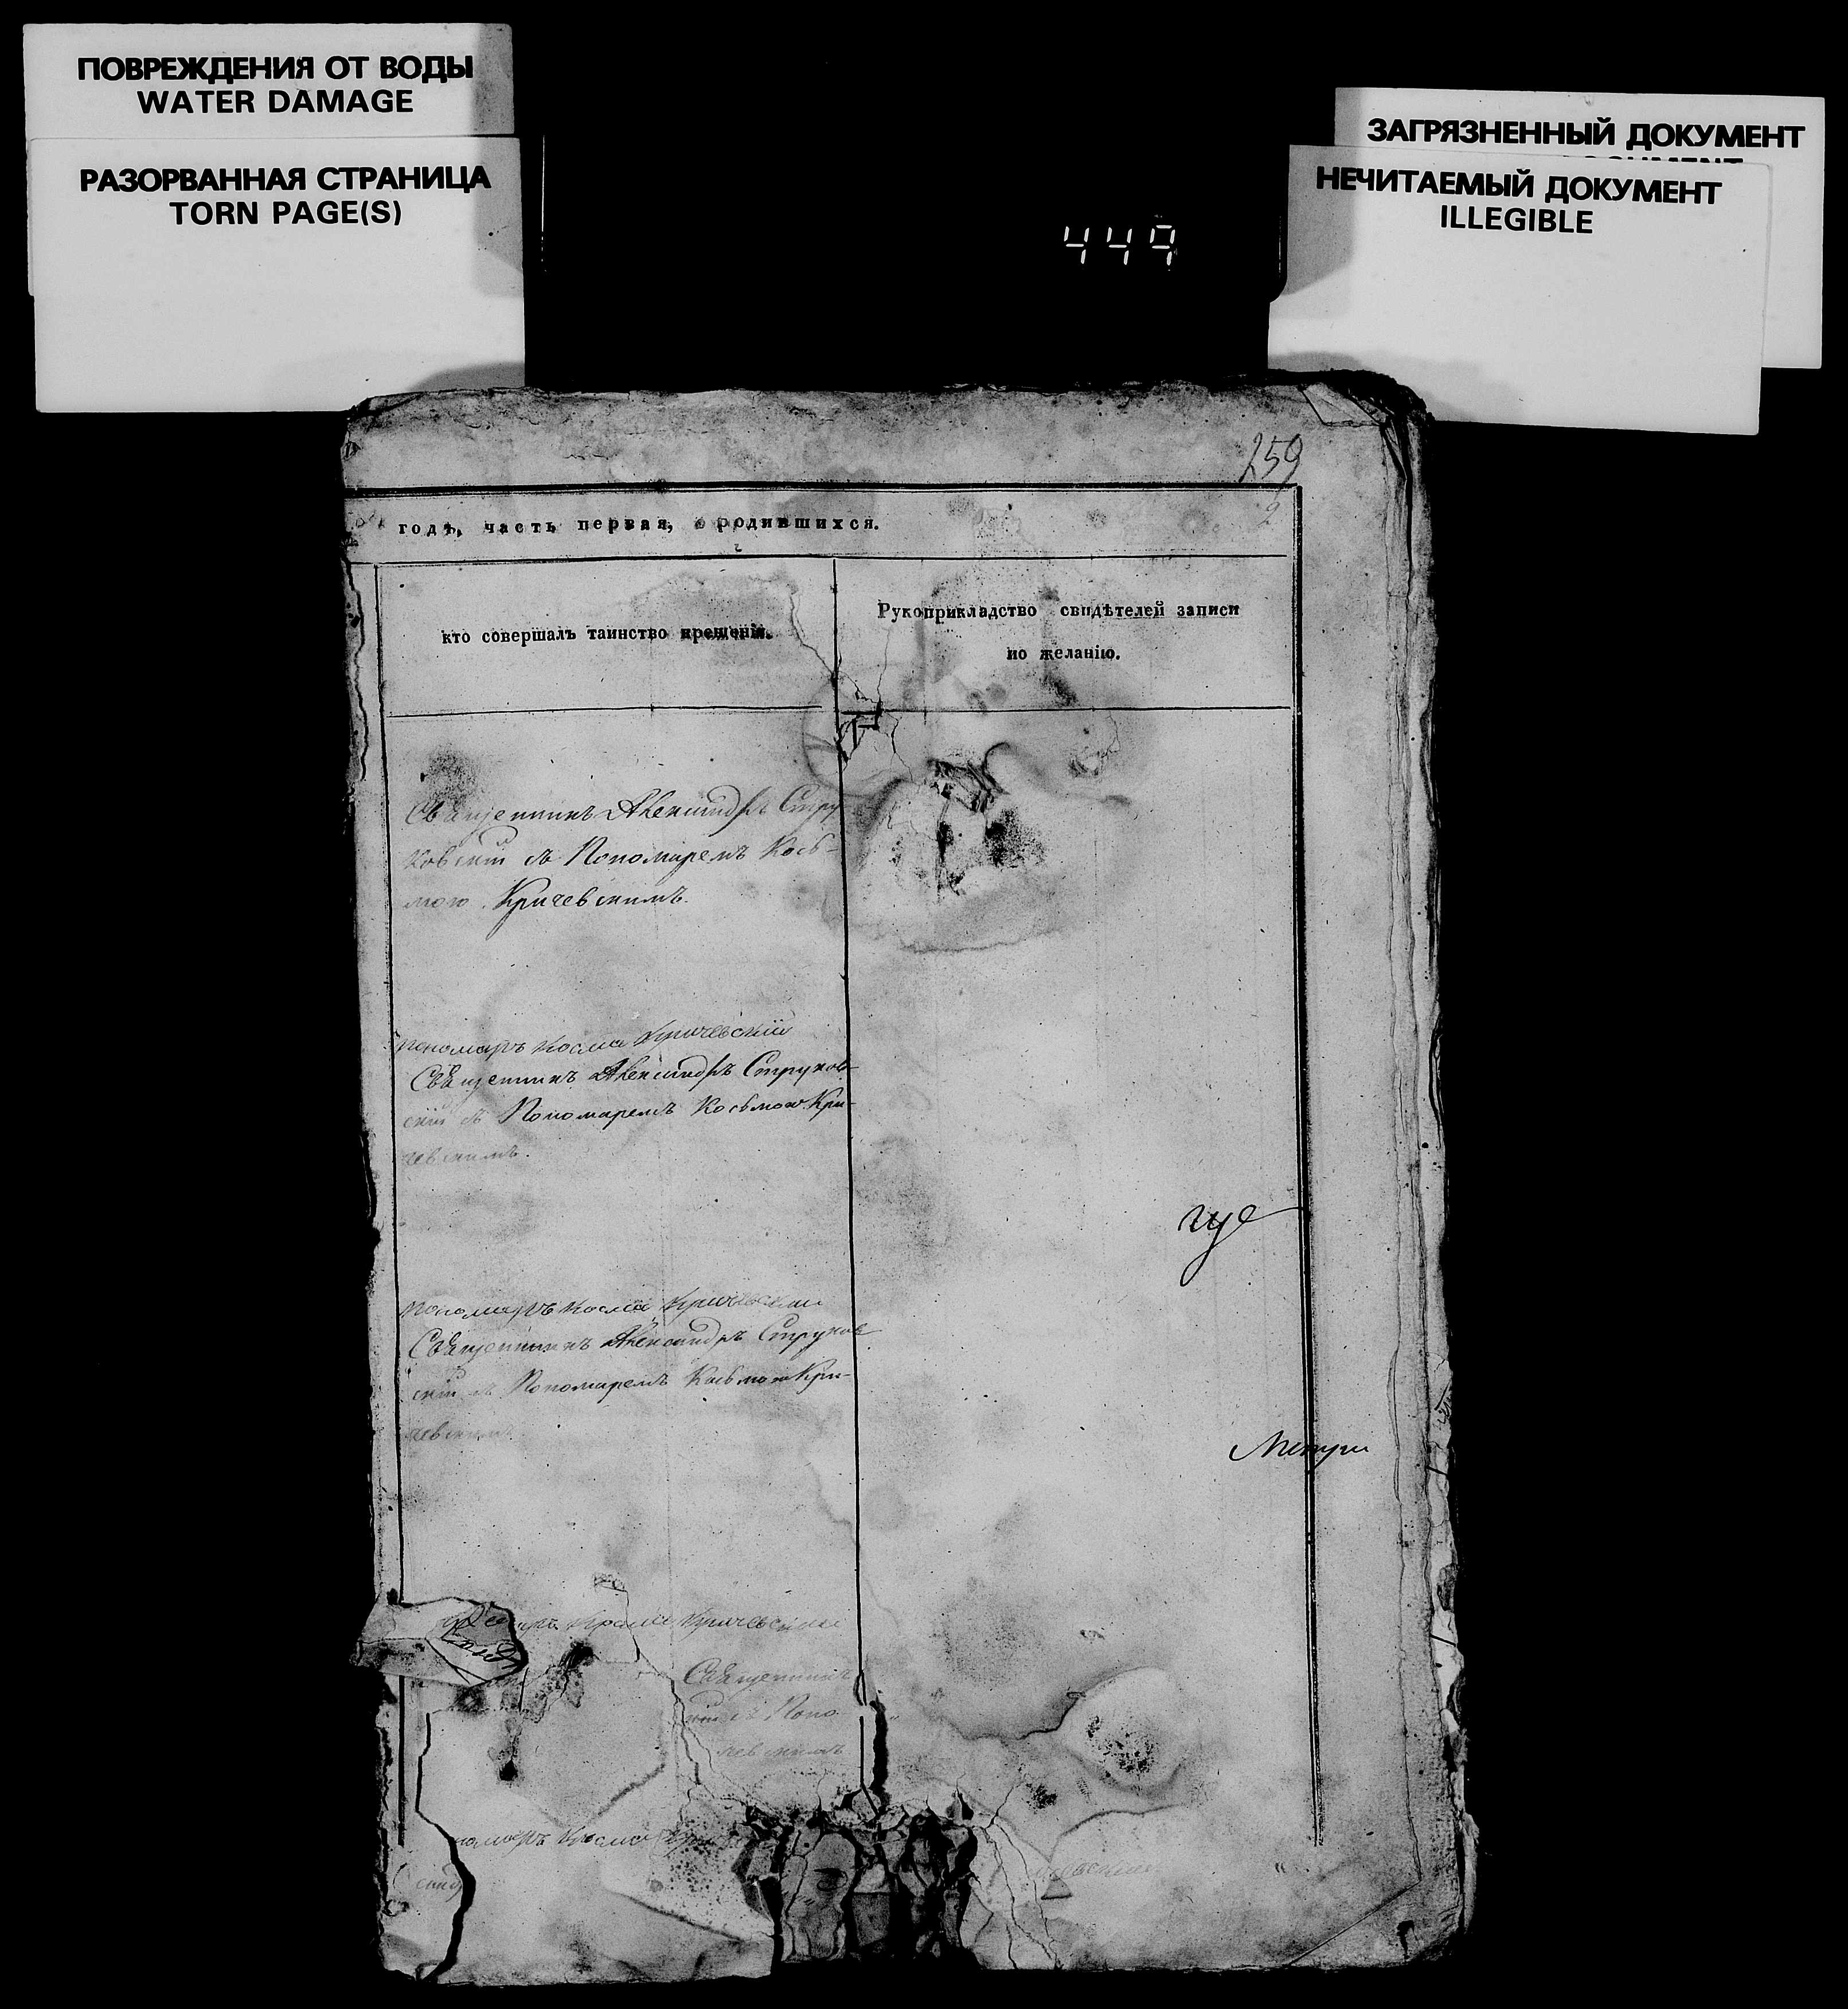 ПОВРЕЖДЕНИЯ ОТ ВОДЫ
WATER DAMAGE
РАЗОРВАННАЯ СТРАНИЦА
TORN PAGE(S)
ЗАГРЯЗНЕННЫЙ ДОКУМЕНТ
НЕЧИТАЕМЫЙ ДОКУМЕНТ
ILLEGIBLE
449
259
2
годъ, часть первая, о родившихся.
кто совершалъ таинство крещенія.
Рукоприкладство свидѣтелей записи
по желанію.
Священникъ Александръ Стру
ковскій съ Пономаремъ Кось-
мою Кричевскимъ.
пономаръ Косма Кричевскій
Священникъ Александръ Струков-
скій съ Пономаремъ Косьмою Кри-
чевскимъ.
пономаръ Косма Кричевскій
Священникъ Александръ Струков
скій съ Пономаремъ Косьмою Кри-
чевскимъ
Косма Кричевскій
Священникъ
съ Поно
чевскимъ
номаръ Косма